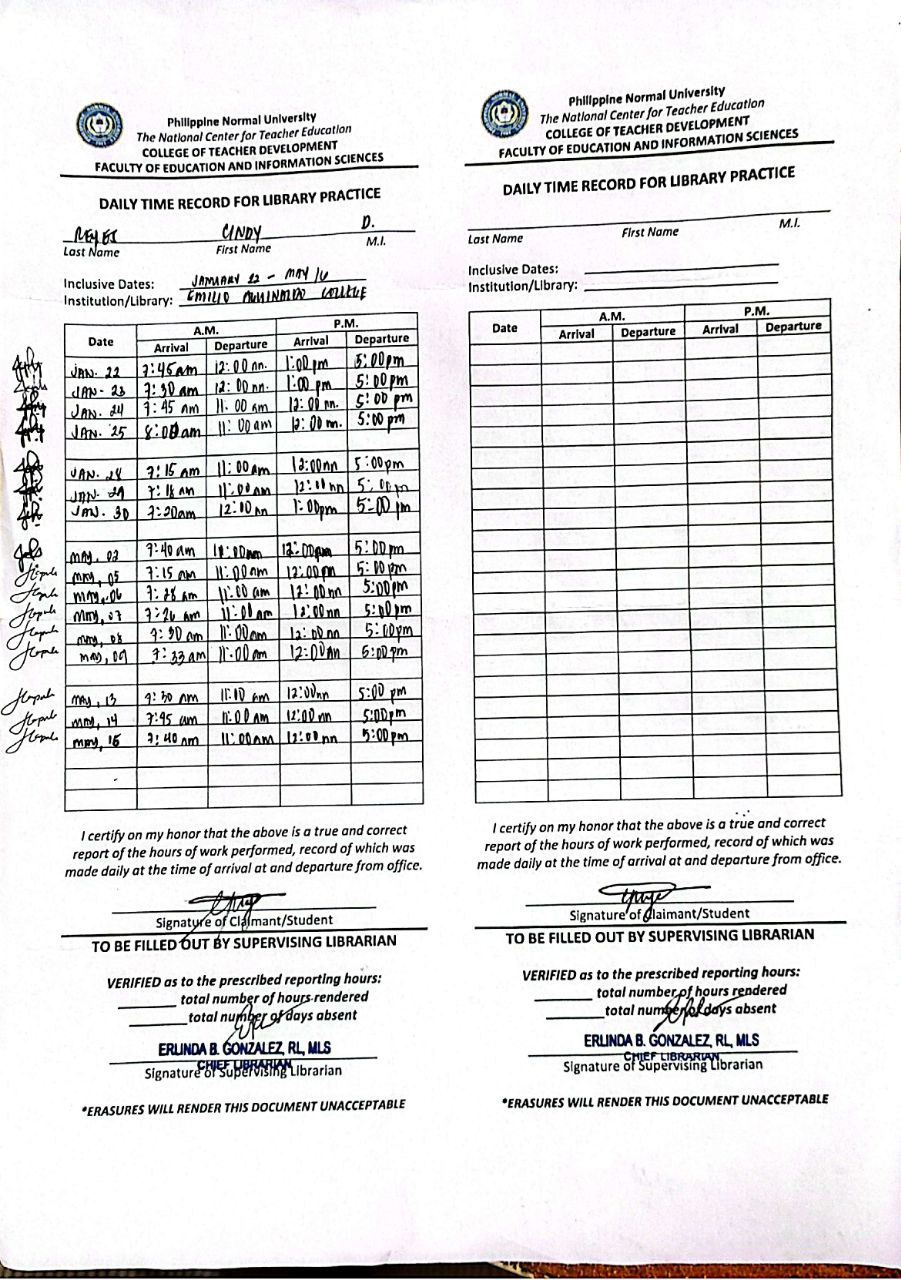 Philippine Normal University
The National Center for Teacher Education
COLLEGE OF TEACHER DEVELOPMENT
FACULTY OF EDUCATION AND INFORMATION SCIENCES
DAILY TIME RECORD FOR LIBRARY PRACTICE
REYES CINDY D.
Last Name First Name M.I.
Inclusive Dates: JANUARY 22 - MAY 16
Institution/Library: EMILIO AGUINALDO COLLEGE
Date A.M. P.M.
Arrival Departure Arrival Departure
JAN. 22 7:45am 12:00nn. 1:00pm 5:00pm
JAN. 23 7:30am 12:00nn. 1:00pm 5:00pm
JAN. 24 7:45am 11:00am 12:00nn. 5:00pm
JAN. 25 8:00am 11:00am 12:00nn. 5:00pm
JAN. 28 7:15am 11:00am 12:00nn 5:00pm
JAN. 29 7:18am 11:00am 12:00nn 5:00pm
JAN. 30 7:20am 12:00nn 1:00pm 5:00pm
MAY, 03 7:40am 11:00am 12:00pm 5:00pm
MAY, 05 7:15am 11:00am 12:00pm 5:00pm
MAY, 06 7:28am 11:00am 12:00nn 5:00pm
MAY, 07 7:26am 11:00am 12:00nn 5:00pm
MAY, 08 7:30am 11:00am 12:00nn 5:00pm
MAY, 09 7:33am 11:00am 12:00nn 5:00pm
MAY, 13 7:30am 11:00am 12:00nn 5:00pm
MAY, 14 7:45am 11:00am 12:00nn 5:00pm
MAY, 15 7:40am 11:00am 12:00nn 5:00pm
I certify on my honor that the above is a true and correct
report of the hours of work performed, record of which was
made daily at the time of arrival at and departure from office.
Signature of Claimant/Student
TO BE FILLED OUT BY SUPERVISING LIBRARIAN
VERIFIED as to the prescribed reporting hours:
total number of hours rendered
total number of days absent
ERLINDA B. GONZALEZ, RL, MLS
CHIEF LIBRARIAN
Signature of Supervising Librarian
*ERASURES WILL RENDER THIS DOCUMENT UNACCEPTABLE
Philippine Normal University
The National Center for Teacher Education
COLLEGE OF TEACHER DEVELOPMENT
FACULTY OF EDUCATION AND INFORMATION SCIENCES
DAILY TIME RECORD FOR LIBRARY PRACTICE
Last Name First Name M.I.
Inclusive Dates:
Institution/Library:
Date A.M. P.M.
Arrival Departure Arrival Departure
I certify on my honor that the above is a true and correct
report of the hours of work performed, record of which was
made daily at the time of arrival at and departure from office.
Signature of Claimant/Student
TO BE FILLED OUT BY SUPERVISING LIBRARIAN
VERIFIED as to the prescribed reporting hours:
total number of hours rendered
total number of days absent
ERLINDA B. GONZALEZ, RL, MLS
CHIEF LIBRARIAN
Signature of Supervising Librarian
*ERASURES WILL RENDER THIS DOCUMENT UNACCEPTABLE